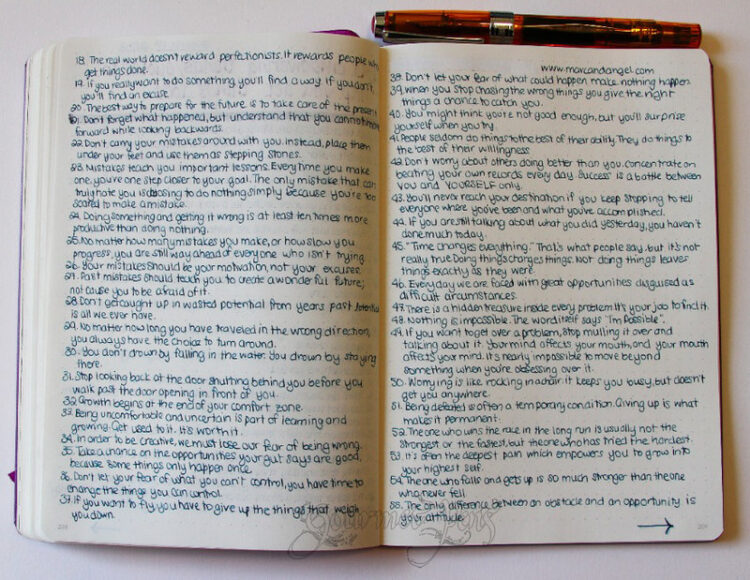 18. The real world doesn't reward perfectionists. It rewards people who
get things done.
19. If you really want to do something you'll find a way if you don't,
you'll find an excuse.
20. The best way to prepare for the future is to take care of the present
21. Don't forget what happened, but understand that you cannot move
forward while looking backwards.
22. Don't carry your mistakes around with you. Instead, place them
under your feet and use them as stepping stones.
23. Mistakes teach you important lessons. Every time you make
one, you're one step closer to your goal. The only mistake that can
truly hate you is choosing to do nothing simply because you're too
scared to make a mistake.
24. Doing something and getting it wrong is at least ten times more
productive than doing nothing.
25. No matter how many mistakes you make, or how slow you
progress, you are still way ahead of everyone who isn't trying.
26. Your mistakes should be your motivation, not your excuses.
27. Past mistakes should teach you to create a wonderful future;
not cause you to be afraid of it.
28. Don't get caught up in wasted potential from years past. Potential
is all we ever have.
29. No matter how long you have traveled in the wrong direction,
you always have the choice to turn around.
30. You don't drown by falling in the water. You drown by staying
there.
31. Stop looking back at the door shutting behind you before you
walk past the door opening in front of you.
32. Growth begins at the end of your comfort zone.
33. Being uncomfortable and uncertain is part of learning and
growing. Get used to it. It's worth it.
34. In order to be creative, we must lose our fear of being wrong.
35. Take a chance on the opportunities your gut says are good,
because some things only happen once.
36. Don't let your fear of what you can't control, you have time to
change the things you can control.
37. If you want to fly you have to give up the things that weigh
you down.
208
www.marcandangel.com
38. Don't let your fear of what could happen make nothing happen.
39. When you stop chasing the wrong things you give the right
things a chance to catch you.
40. You might think you're not good enough, but you'll surprise
yourself when you try.
41. People seldom do things to the best of their ability. They do things to
the best of their willingness.
42. Don't worry about others doing better than you. Concentrate on
beating your own records every day. Success is a battle between
YOU and YOURSELF only.
43. You'll never reach your destination if you keep stopping to tell
everyone where you've been and what you've accomplished.
44. If you are still talking about what you did yesterday, you haven't
done much today.
45. "Time changes everything." That's what people say, but it's not
really true. Doing things changes things. Not doing things leaves
things exactly as they were.
46. Every day we are faced with great opportunities disguised as
difficult circumstances.
47. There is a hidden treasure inside every problem. It's your job to find it.
48. Nothing is impossible. The word itself says "I'm Possible".
49. If you want to get over a problem, stop mulling it over and
talking about it. Your mind affects your mouth, and your mouth
affects your mind. It's nearly impossible to move beyond
something when you're obsessing over it.
50. Worrying is like rocking in a chair it keeps you busy, but doesn't
get you anywhere.
51. Being defeated is often a temporary condition. Giving up is what
makes it permanent.
52. The one who wins the race in the long run is usually not the
strongest or the fastest, but the one who has tried the hardest.
53. It's often the deepest pain which empowers you to grow into
your highest self.
54. The one who falls and gets up is so much stronger than the one
who never fell.
55. The only difference between an obstacle and an opportunity is
your attitude.
209
Gourmet Pens